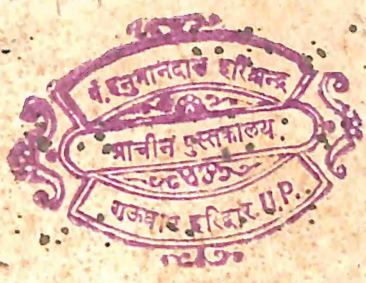 पं. हनुमानदास हरिश्चन्द्र
प्राचीन पुस्तकालय.
गऊघाट हरिद्वार U.P.